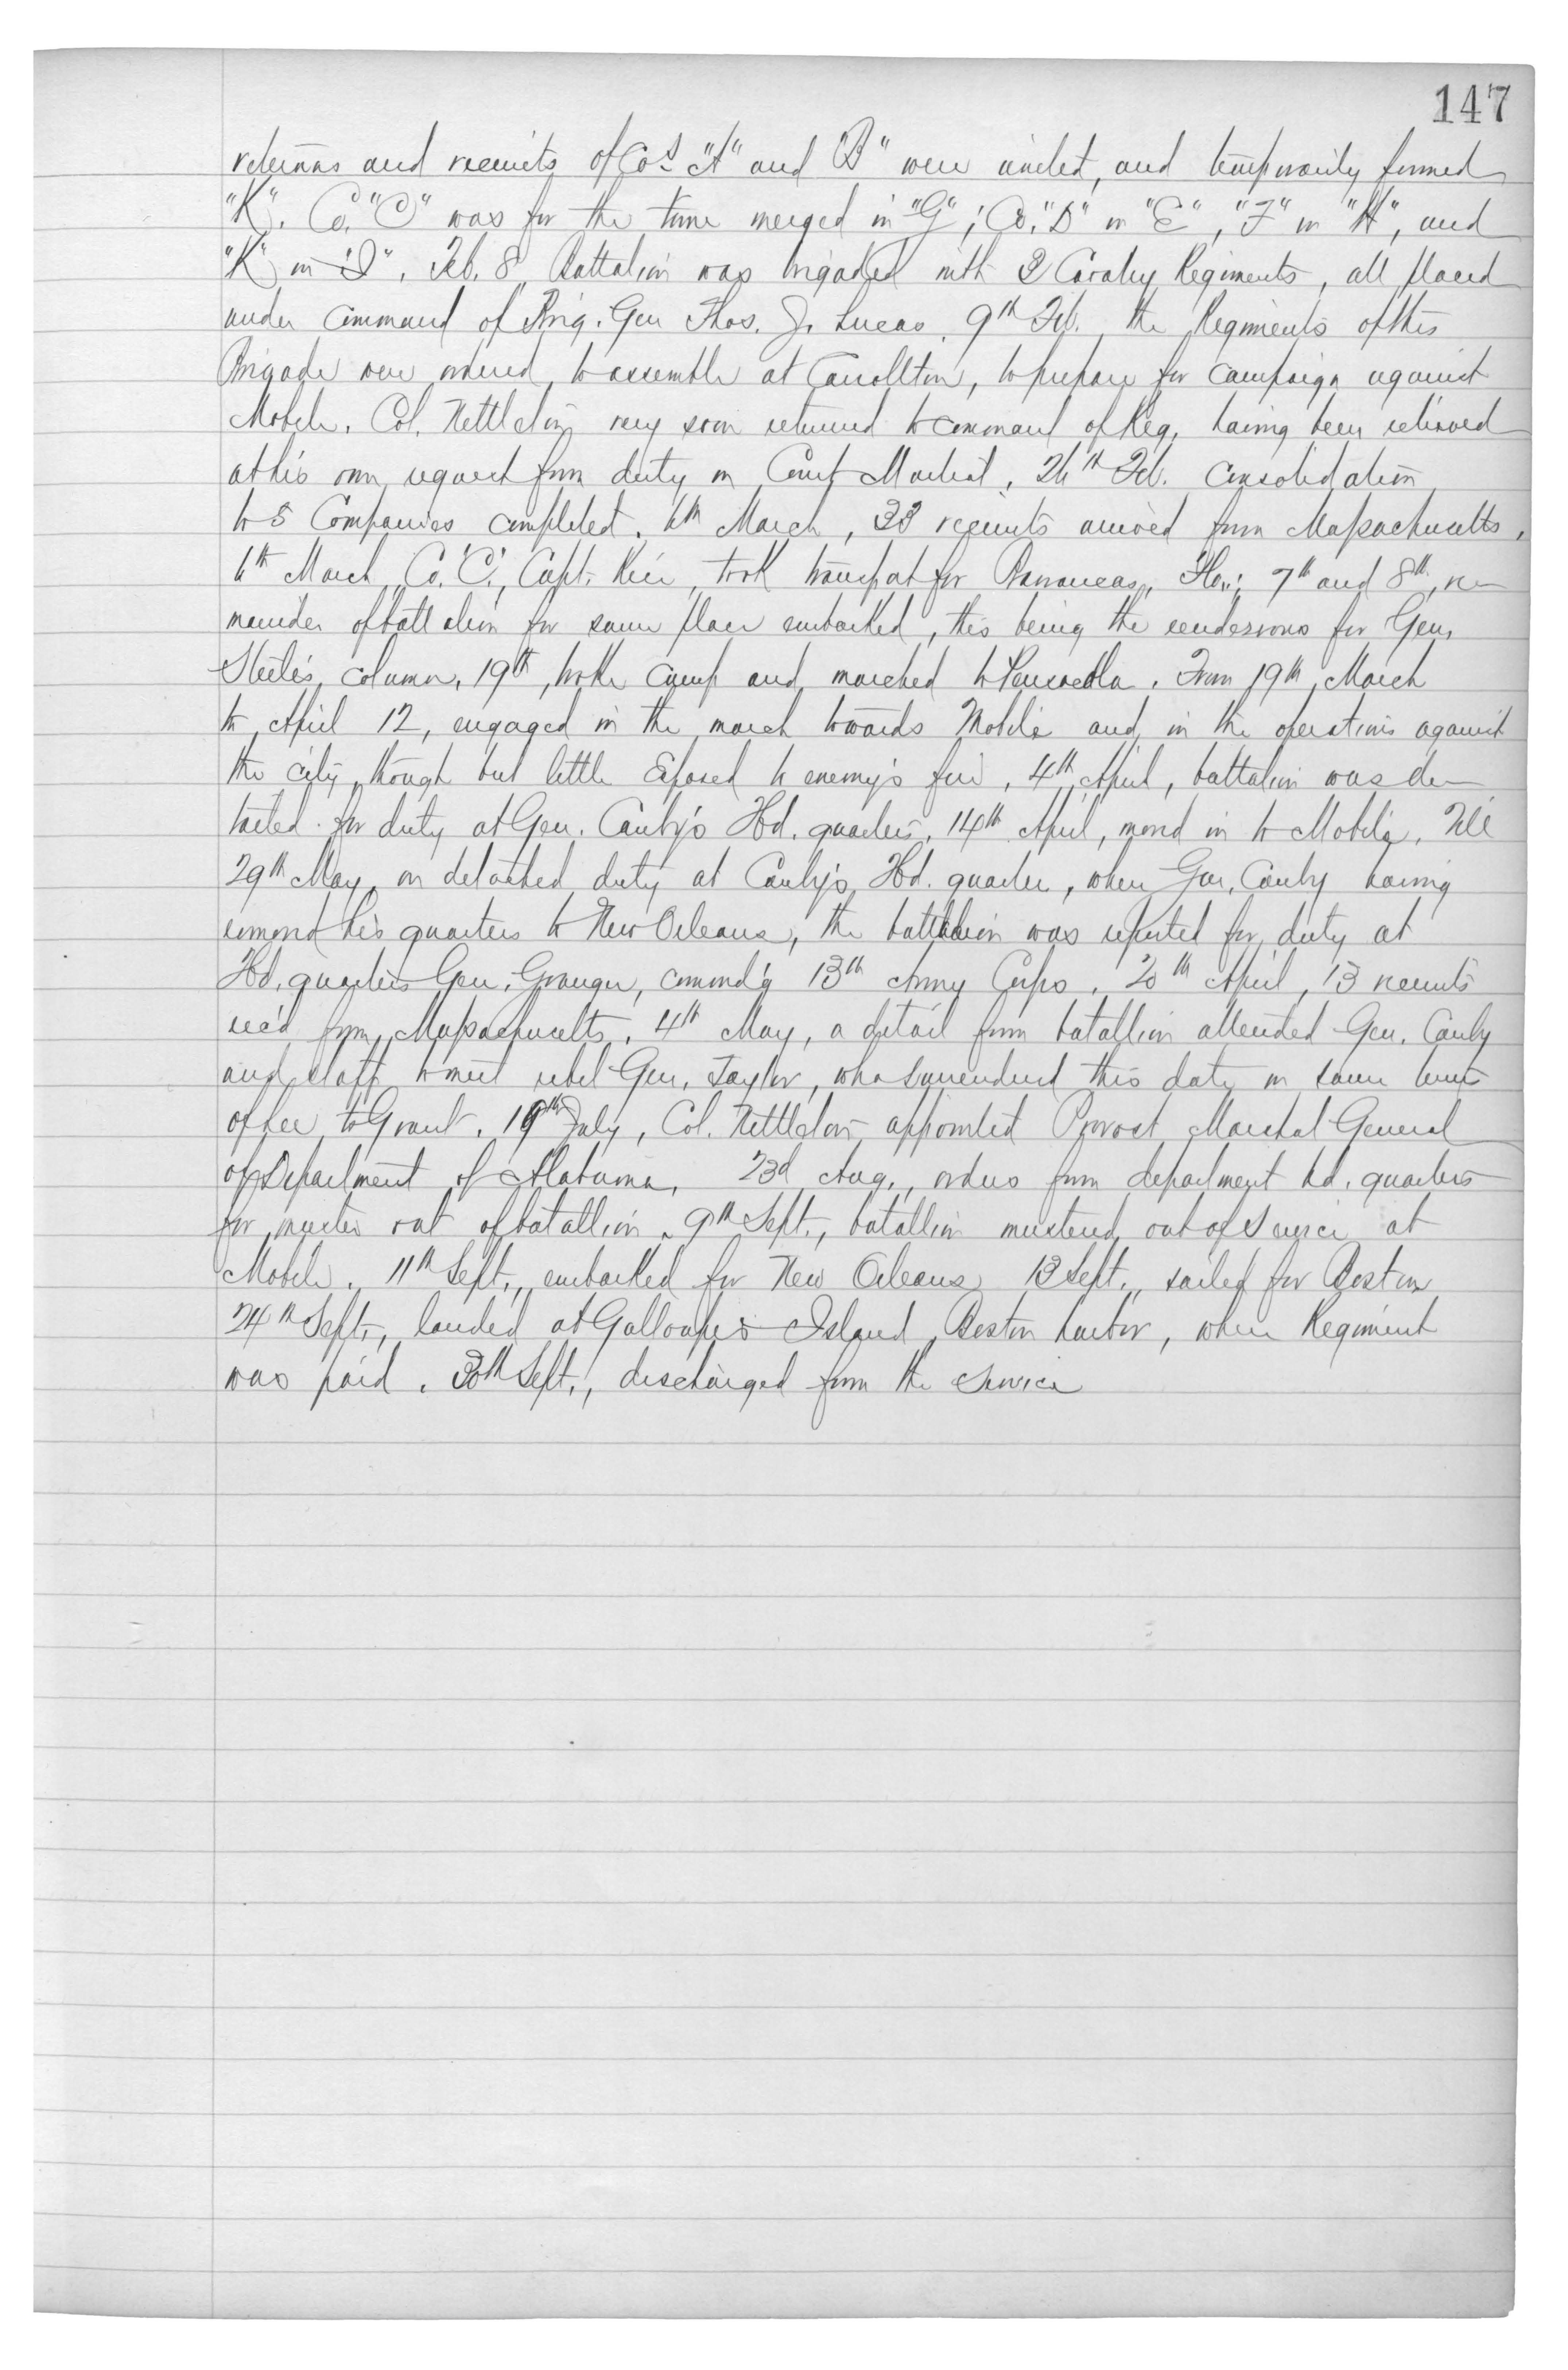 147
veterans and recruits of Cos "A" and "B" were united, and temporarily formed
"K". Co. "C" was for the time merged in "G"; Co. "D" in "E", "F" in "H", and
"K" in "I". Feb. 8 Battalion was brigaded with 3 Cavalry Regiments, all placed
under command of Brig. Gen Thos. J. Lucas. 9th Feb. the Regiments of this
Brigade were ordered to assemble at Carrollton, to prepare for campaign against
Mobile. Col. Nettleton very soon returned to command of Reg. having been relieved
at his own request from duty on Court Martial. 26th Feb. Consolidation
to 5 Companies completed. 6th March, 33 recruits arrived from Massachusetts.
6th March Co. "C", Capt. took transport for Barrancas, Flo.; 7th and 8th, re-
mainder of battalion for same place embarked, this being the rendezvous for Gen.
Steele's column. 19th, broke camp and marched to Pensacola. From 19th March
to April 12, engaged in the march towards Mobile and in the operations against
the city, though but little Exposed to enemy's fire. 4th April, battalion was de-
tailed for duty at Gen. Canby's Hd. quarters. 14th April, moved in to Mobile. Till
29th May, on detached duty at Canby's Hd. quarter, when Gen. Canby having
removed his quarters to New Orleans, the battalion was reported for duty at
Hd. quarters Gen. Granger, command'g 13th Army Corps. 20th April, 13 recruits
rec'd from Massachusetts. 4th May, a detail from batallion attended Gen. Canby
and staff to meet rebel Gen. Taylor, who surrendered this date on same terms
of Lee to Grant. 19th July, Col. Nettleton appointed Provost Marshal General
of Department of Alabama. 23d Aug., orders from department hd. quarters
for muster out of batallion. 9th Sept., batallion mustered out of service at
Mobile. 11th Sept., embarked for New Orleans 13 Sept., sailed for Boston
24th Sept., landed at Galloupes Island Boston harbor, where Regiment
was paid. 30th Sept., discharged from the service